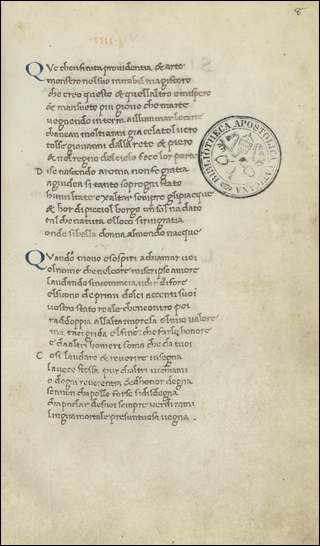 8
Que chenfinita providentia & arte
monstro nel suo mirabil magistero
che creo questo & quellaltro emispero
& mansueto piu giove che marte
vegnendo in terra alluminar le carte
chavean moltanni gia celato l vero
tolse giovanni dalla rete & piero
& nel regno del cielo fece lor parte
D ise nascendo a roma non fe gratia
a giudea si tanto soprogni stato
humilitate exaltar sempre gli piacque
& hor di picciol borgo un sol na dato
tal che natura el loco si ringratia
onde si bella donna al mondo nacque
Quando movo e sospiri a chiamar voi
el nome che nel core mi scripse amore
laudando sincomincia udir di fore
el suono de primi dolci accenti suoi
vostro stato reale chencontro poi
raddoppia allalta impresa el mio valore
ma. taci grida el fine: che farle honore
e daltri homeri soma che da tuoi
C osi laudare & reverire insegna
la voce stessa. pur chaltri vi chiami
o dogni reverenza & dhonor degna
se non chapollo forse si disdegna
cha parlar de suoi sempre verdi rami
lingua mortale presuntuosa vegna.
BIBLIOTHECA APOSTOLICA VATICANA